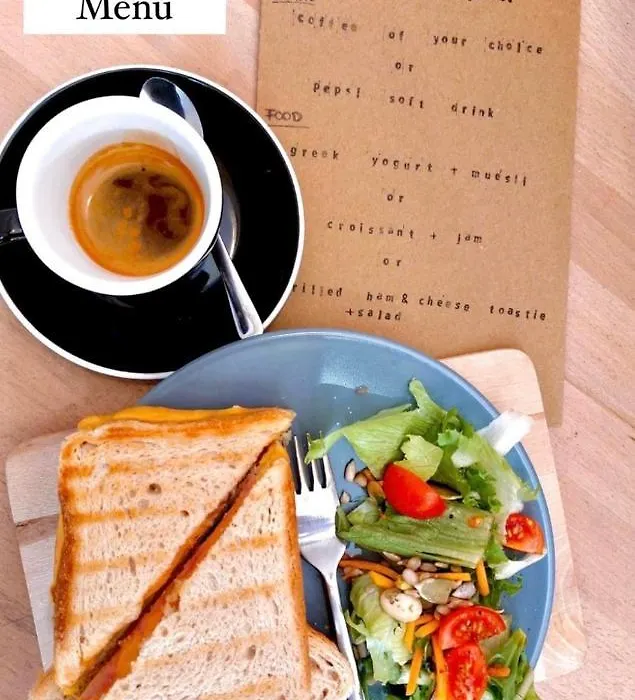 Menu
coffee of your choice
or
pepsi soft drink
FOOD
greek yogurt + muesli
or
croissant + jam
or
rilled ham & cheese toastie
+salad